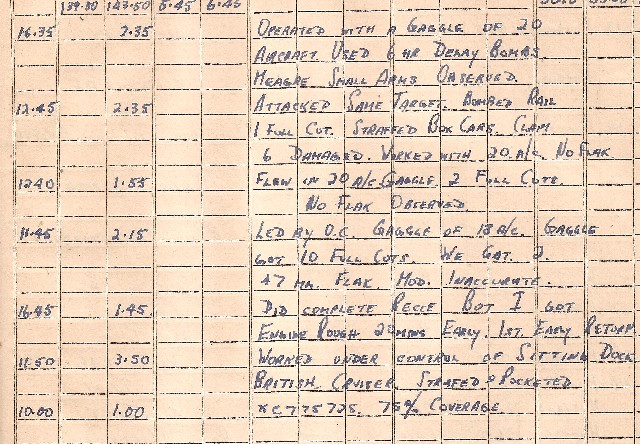 139.30 143.50 5.45 6.45
16.35 2.35 OPERATED WITH A GAGGLE OF 20
AIRCRAFT USED 6 HR DELAY BOMBS
MEAGRE SMALL ARMS OBSERVED.
12.45 2.35 ATTACKED SAME TARGET. BOMBED RAIL
1 FULL CUT. STRAFFED BOX CARS. CLAIM
6 DAMAGED. WORKED WITH 20 A/C. NO FLAK
1240 1.55 FLEW IN 20 A/C. GAGGLE 2 FULL CUTS.
NO FLAK OBSERVED
11.45 2.15 LED BY O.C. GAGGLE OF 18 A/C. GAGGLE
GOT 10 FULL CUTS. WE GAT. 2.
47 MM. FLAK. MOD. INACCURATE.
16.45 1.45 DID COMPLETE RECCE BOT I GOT
ENGINE ROUGH 20 MINS EARLY. 1ST. EARLY RETURN
11.50 3.50 WORKED UNDER CONTROL OF SITTING DOCK
BRITISH CRUISER. STRAFED & ROCKETED
10.00 1.00 775725. 75% COVERAGE.